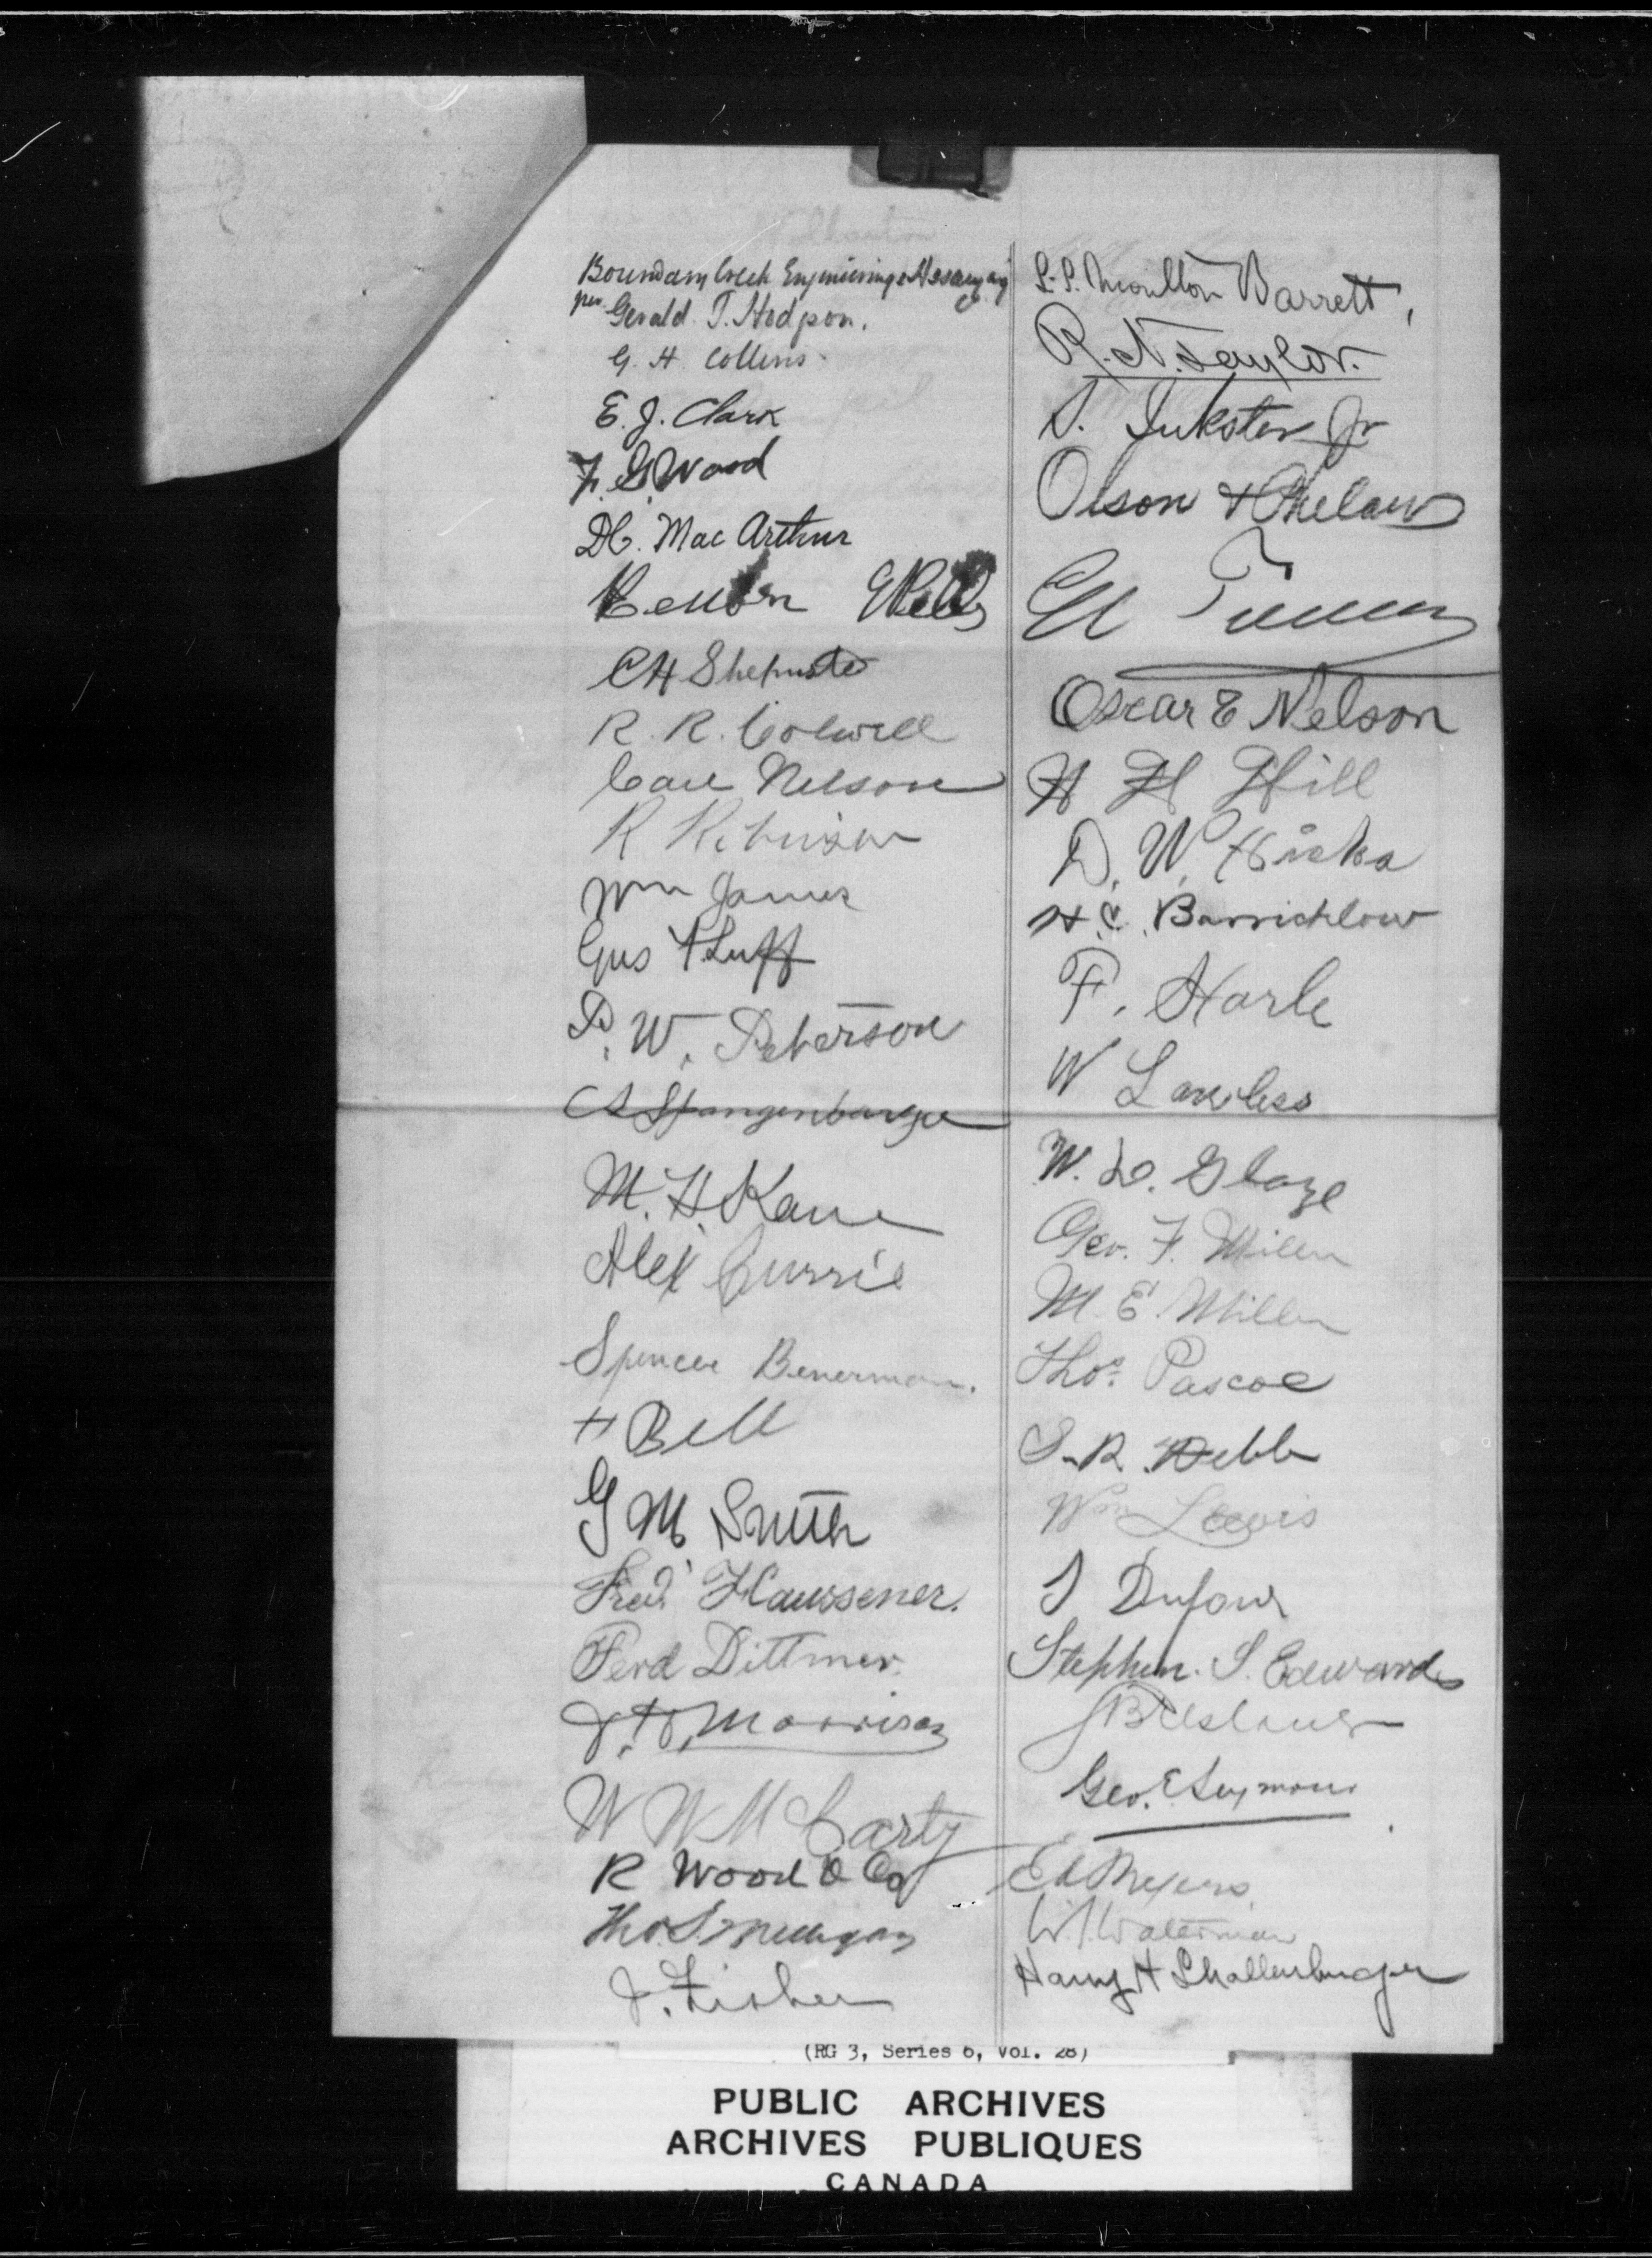 Boundary Creek Engineering & Assaying Co.
per Gerald T. Hodgson.
G. H. Collins
E. J. Clark
F. G. Wood
D C. Mac Arthur
Wells
C H
R. R. Colwell
Carl Nelson
R Robinson
Wm James
Gus
P. W. Peterson
Spangenburger
M. H. Kane
Alex Currie
Spencer Benerman.
H Bell
G M Smith
Fred Haussener.
Ferd Dittmer.
Morrison
W W McCarty
R Wood & Co
Thos. Milligan
J. Fisher
Moulton Barrett,
R. N. Taylor.
S. Inkster Jr
Olson & Phelan
Oscar E Nelson
H H Hill
D. W. Hicks
H. C. Barrichlow
F. Harle
W Lawless
W. D. Glaze
Geo. F. Miller
M. E. Miller
Thos. Pascoe
S. R. Webb
Wm Lewis
Dufour
Stephen. S. Edwards
Breslauer
Geo. E Seymour
Ed Meyers
Waterman
Harry H Shallenburger
(RG 3, Series 6, Vol. 28)
PUBLIC ARCHIVES
ARCHIVES PUBLIQUES
CANADA